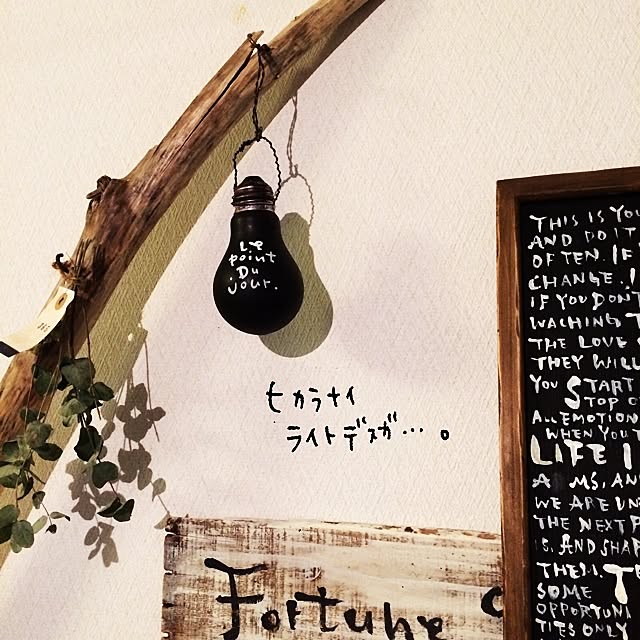 Le
point
Du
jour.
ヒカラナイ
ライトデスガ… 。
Fortune
THIS IS YOU
AND DO IT
OFTEN. IF
CHANGE.
IF YOU DON'T
WACHING T
THE LOVE
THEY WILL
YOU START
STOP
ALL EMOTION
WHEN YOU
LIFE I
A MS, AN
WE ARE UN
THE NEXT P
IS, AND SHAR
THEM. T
SOME
OPPORTUNI
TIES ONLY